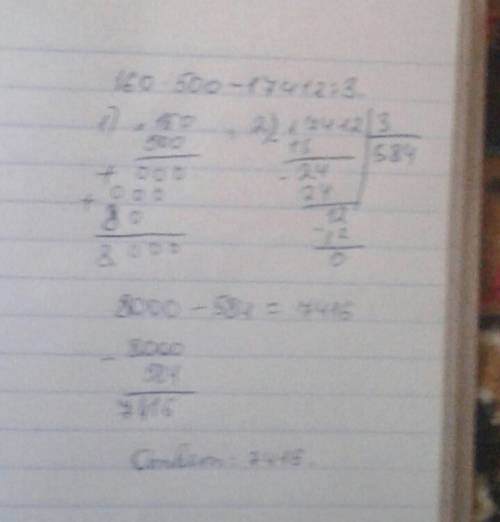 160·500-17412:3
1) 160 2) 17412 3
500 15 584
+ 000 - 24
+ 000 24
80 12
8000 - 12
0
8000 - 584 = 7416
- 8000
584
7416
Ответ: 7416.